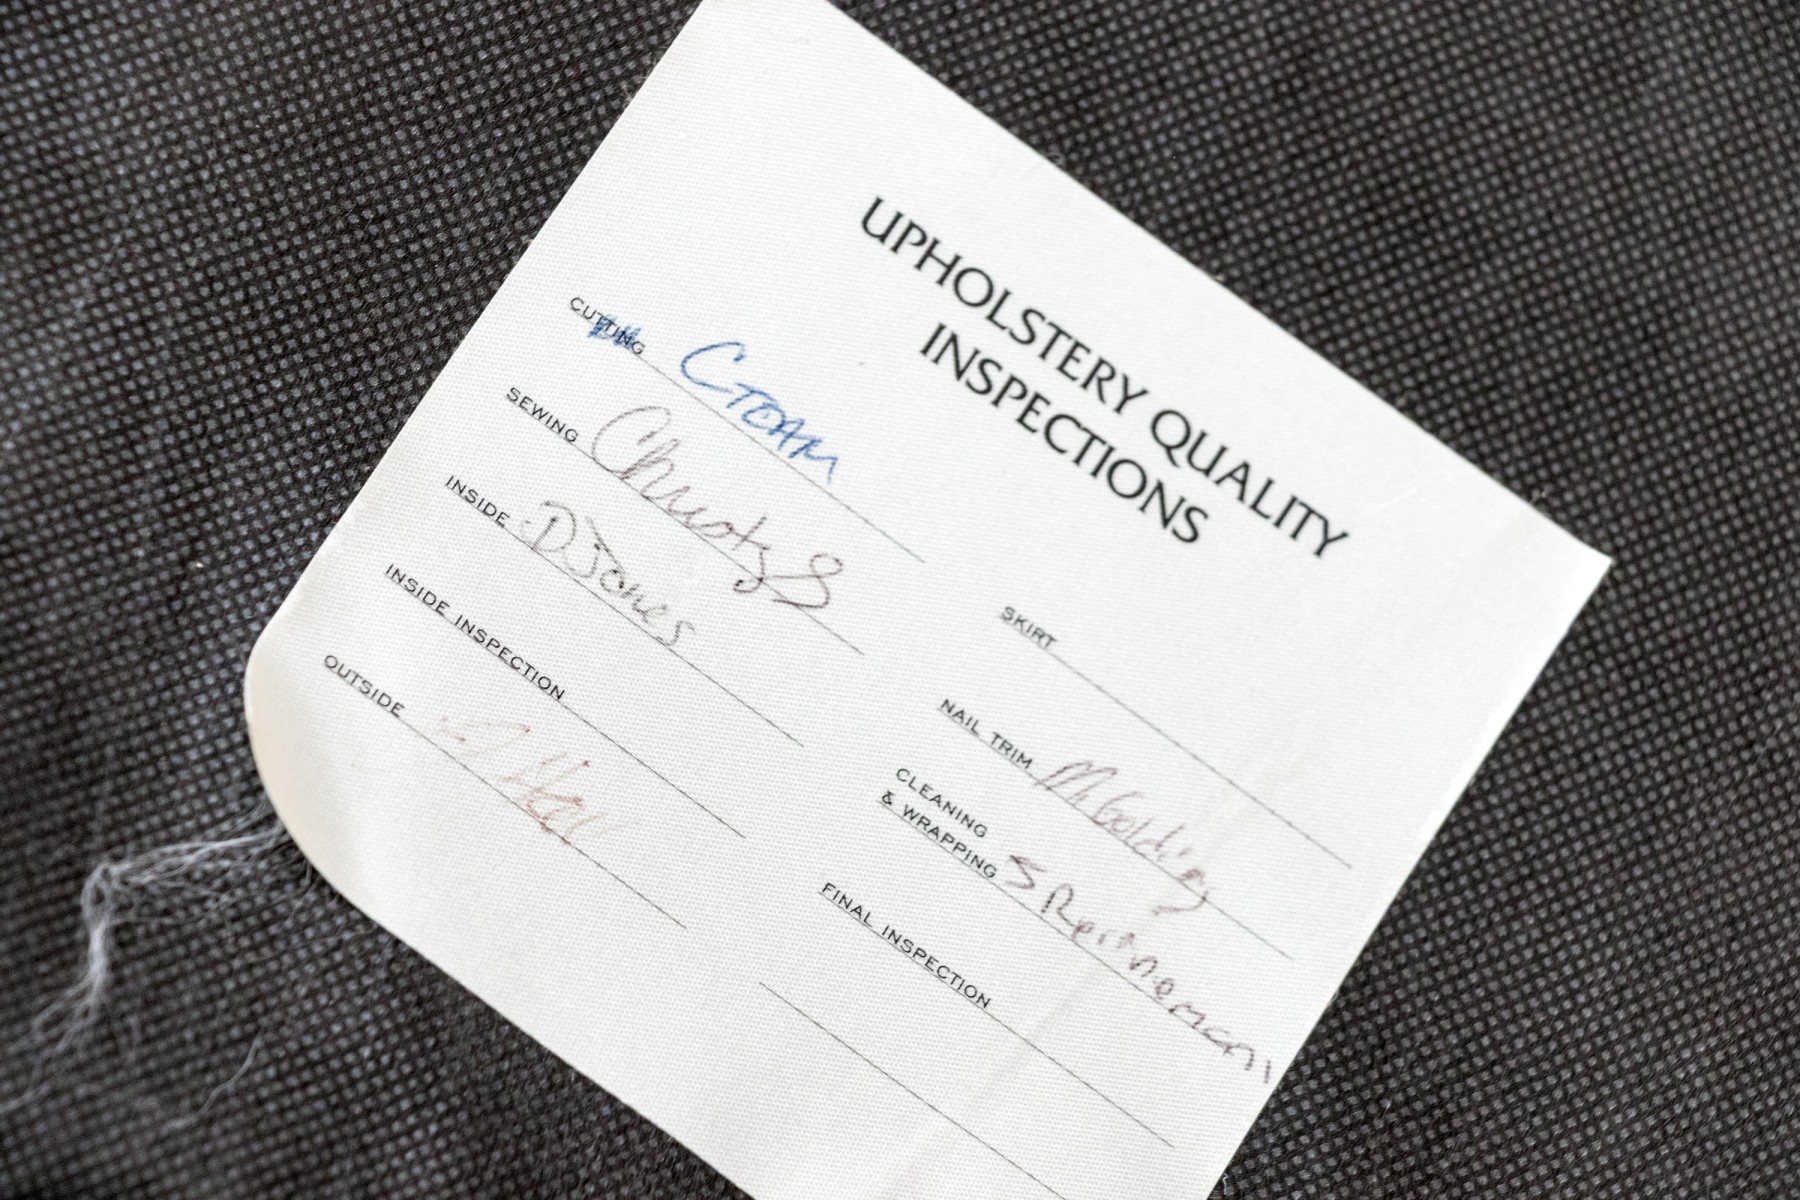 UPHOLSTERY QUALITY
INSPECTIONS
CUTTING CTEAM
SEWING Christy S
INSIDE D Jones
INSIDE INSPECTION
OUTSIDE
SKIRT
NAIL TRIM M Golding
CLEANING
& WRAPPING S
FINAL INSPECTION